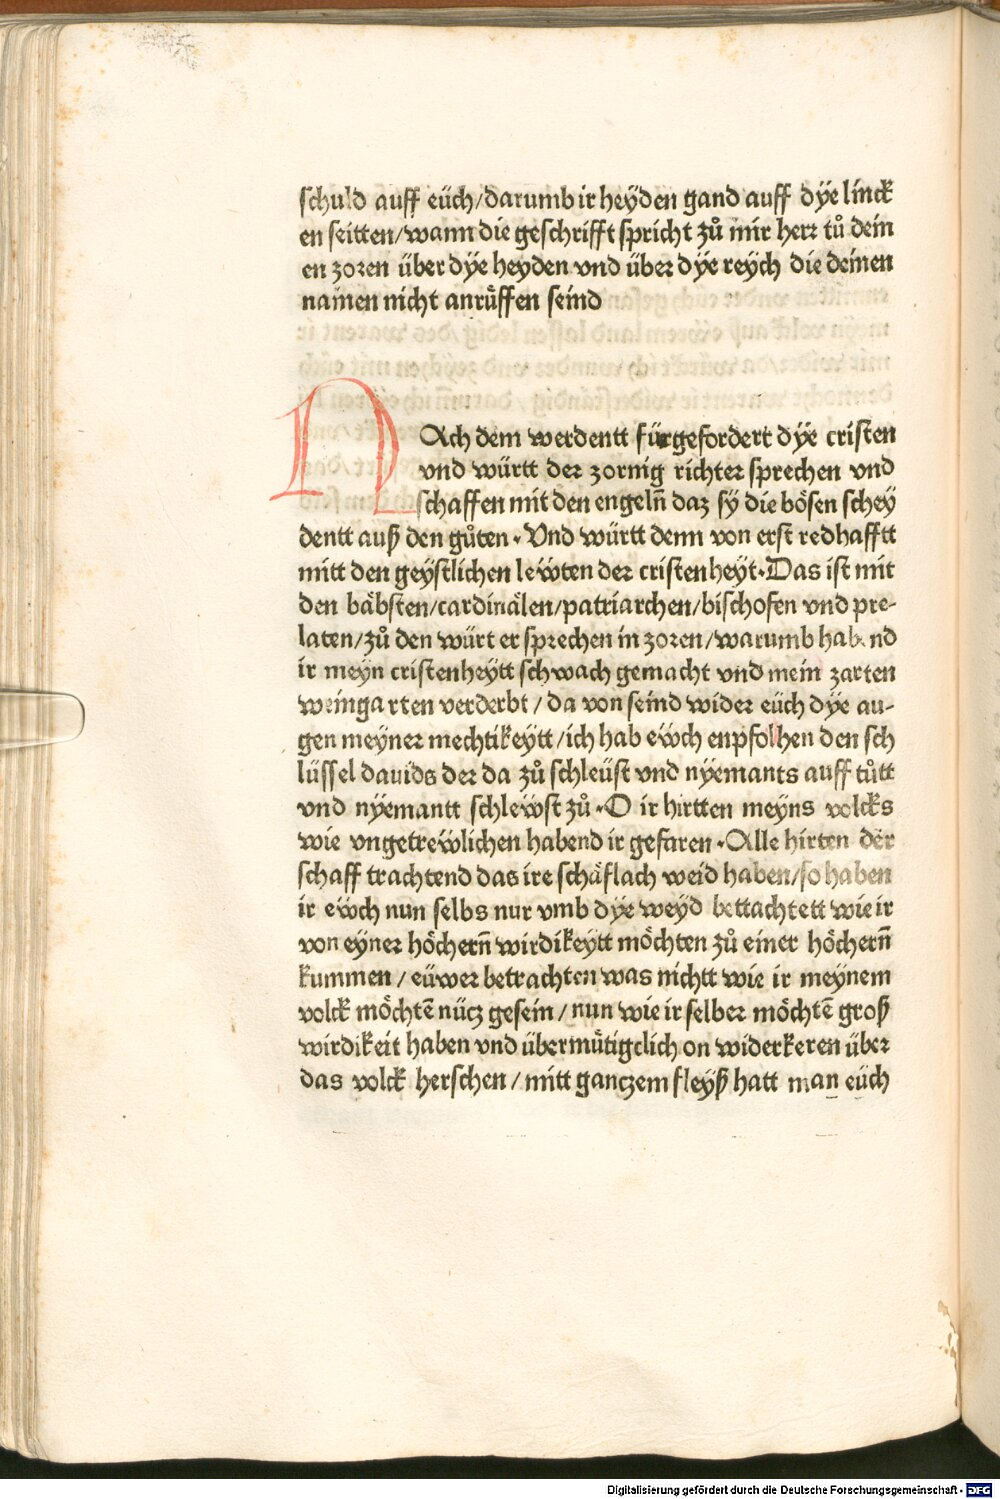 schuld auff eüch/darumb ir heyden gand auff dÿe linck
en seitten/wann die geschrifft spricht zů mir herr tů dein
en zoren über dÿe heyden vnd über dÿe reÿch die deinen
namen nicht anrůffen seind
NAch dem werdentt fürgefordert dÿe cristen
vnd württ der zornig richter sprechen vnd
schaffen mit den engeln̄ daz sÿ die bösen schey
dentt auß den gůten. Vnd württ denn von erst redhafftt
mitt den geÿstlichen leẅten der cristenheÿt. Das ist mit
den bäbsten/cardinälen/patriarchen/bischofen vnd pre-
laten/zů den würt er sprechen in zoren/warumb habend
ir meÿn cristenheÿtt schwach gemacht vnd mein zarten
weingarten verderbt/da von seind wider eüch dÿe au-
gen meÿner mechtikeÿtt/ich hab eẅch enpfolhen den sch
lüssel dauids der da zů schleüst vnd nÿemants auff tůtt
vnd nÿemantt schleẅst zů. O ir hirtten meÿns volcks
wie vngetreẅlichen habend ir gefaren. Alle hirten der
schaff trachtend das ire schäflach weid haben/so haben
ir eẅch nun selbs nur vmb dÿe weÿd bettachtett wie ir
von eÿner höchern̄ wirdikeÿtt möchten zů einer höchern̄
kummen/eüwer betrachten was nichtt wie ir meÿnem
volck möchtē nücz gesein/nun wie ir selber möchtē groß
wirdikeit haben vnd übermůtigclich on widerkeren über
das volck herschen/mitt ganczem fleÿß hatt man eüch
Digitalisierung gefördert durch die Deutsche Forschungsgemeinschaft - DFG